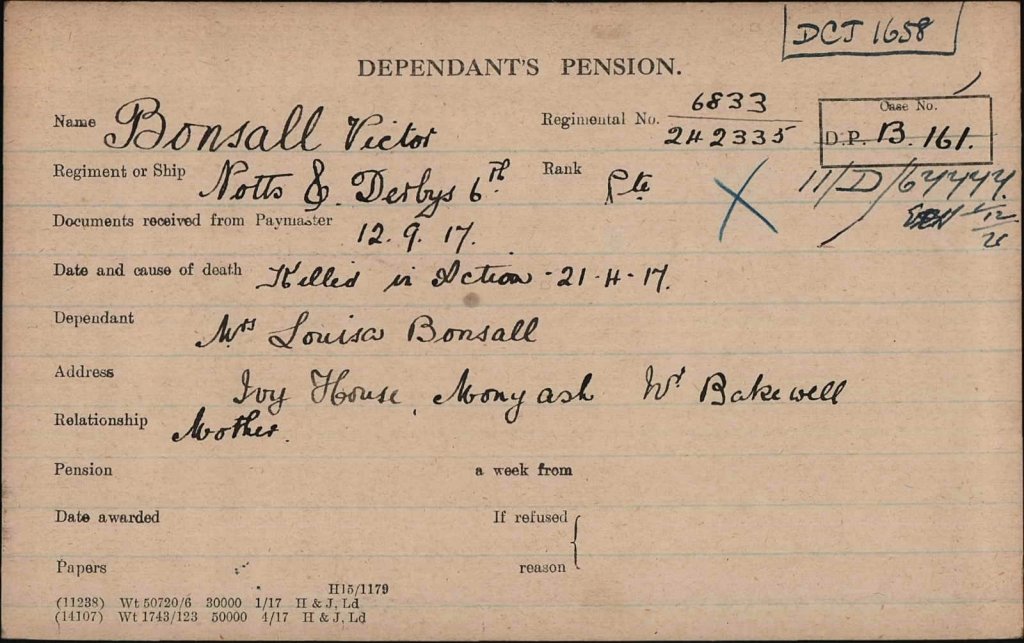 DCJ 1658
DEPENDANT'S PENSION.
Name Bonsall Victor Regimental No. 6833
242335
Case No.
D.P. B. 161.
Regiment or Ship Notts & Derbys 6th Rank Pte
11/D/64444.
12
Documents received from Paymaster 12.9.17.
Date and cause of death Killed in Action - 21-4-17.
Dependant Mrs Louisa Bonsall
Address Ivy House, Monyash Nr Bakewell
Relationship Mother.
Pension a week from
Date awarded If refused
Papers reason
H15/1179
(11238) Wt 50720/6 30000 1/17 H & J, Ld
(14107) Wt 1743/123 50000 4/17 H & J, Ld